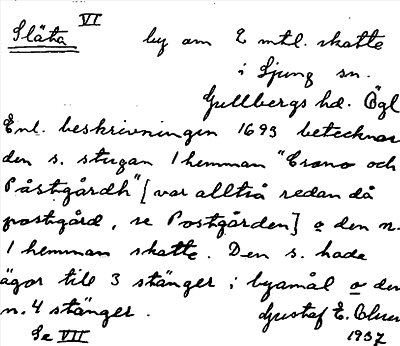 Släta VI by om 2 mtl. skatte
i Ljung sn.
Gullbergs hd. Ögl
Enl. beskrivningen 1693 betecknar
den s. stugan 1 hemman "Crono och
Påstgårdh" [var alltså redan då
postgård, se Postgården] o den n.
1 hemman skatte. Den s. hade
ägor till 3 stänger i byamål o den
n. 4 stänger. Gustaf E.
Se VII 1937